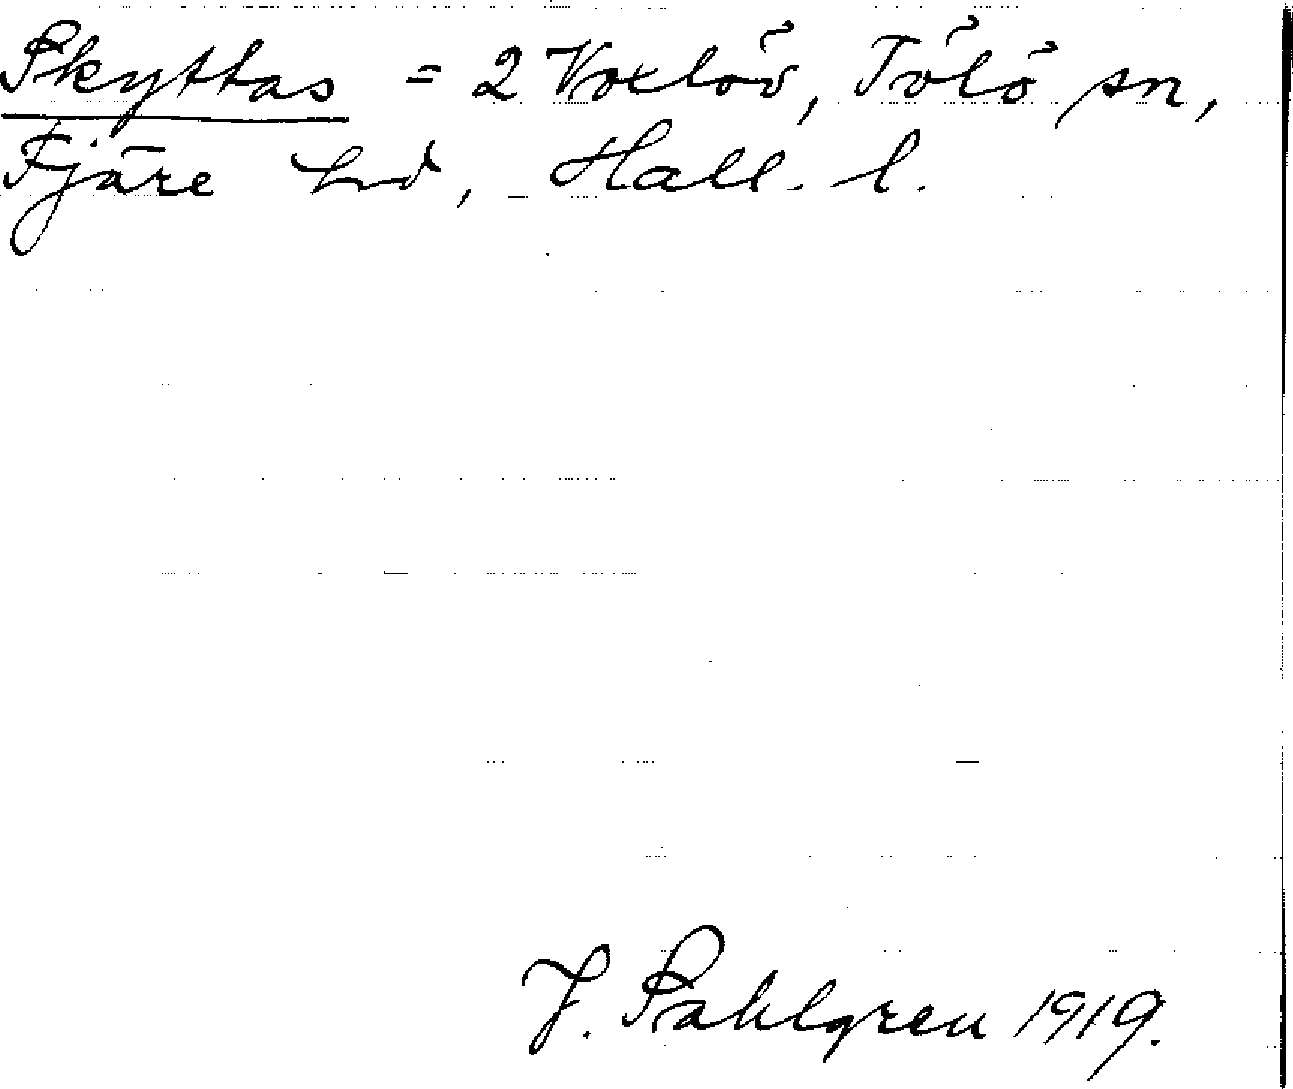 Skyttas = 2 Voxlöv, Tölö sn,
Fjäre hd, Hall. l.
J. Sahlgren 1919.